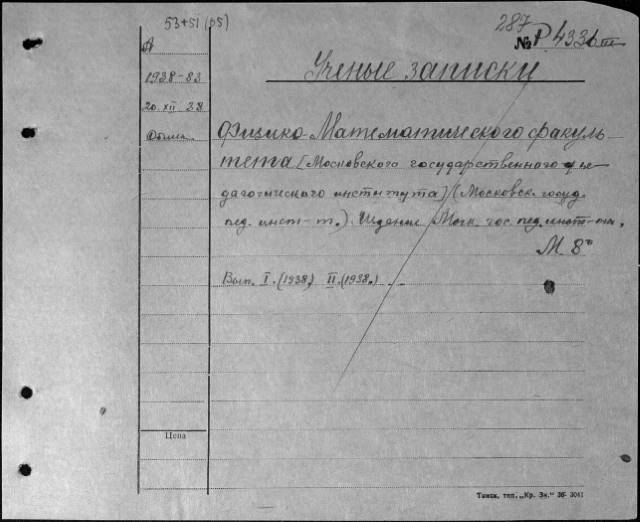 53+51 (05)
287
№ Р 433 III
А
Ученые записки
1938-83
20. XII 38
Обмен
Физико-Математического факуль-
тета (Московского государственного пе-
дагогического института) (Московск. госуд.
пед. инст-т.). Издание Моск. гос. пед. инст-та.
М. 8°
Вып. I. (1938) II. (1938.)
Цена
Томск, тип. „Кр. Зн." 36- 3041